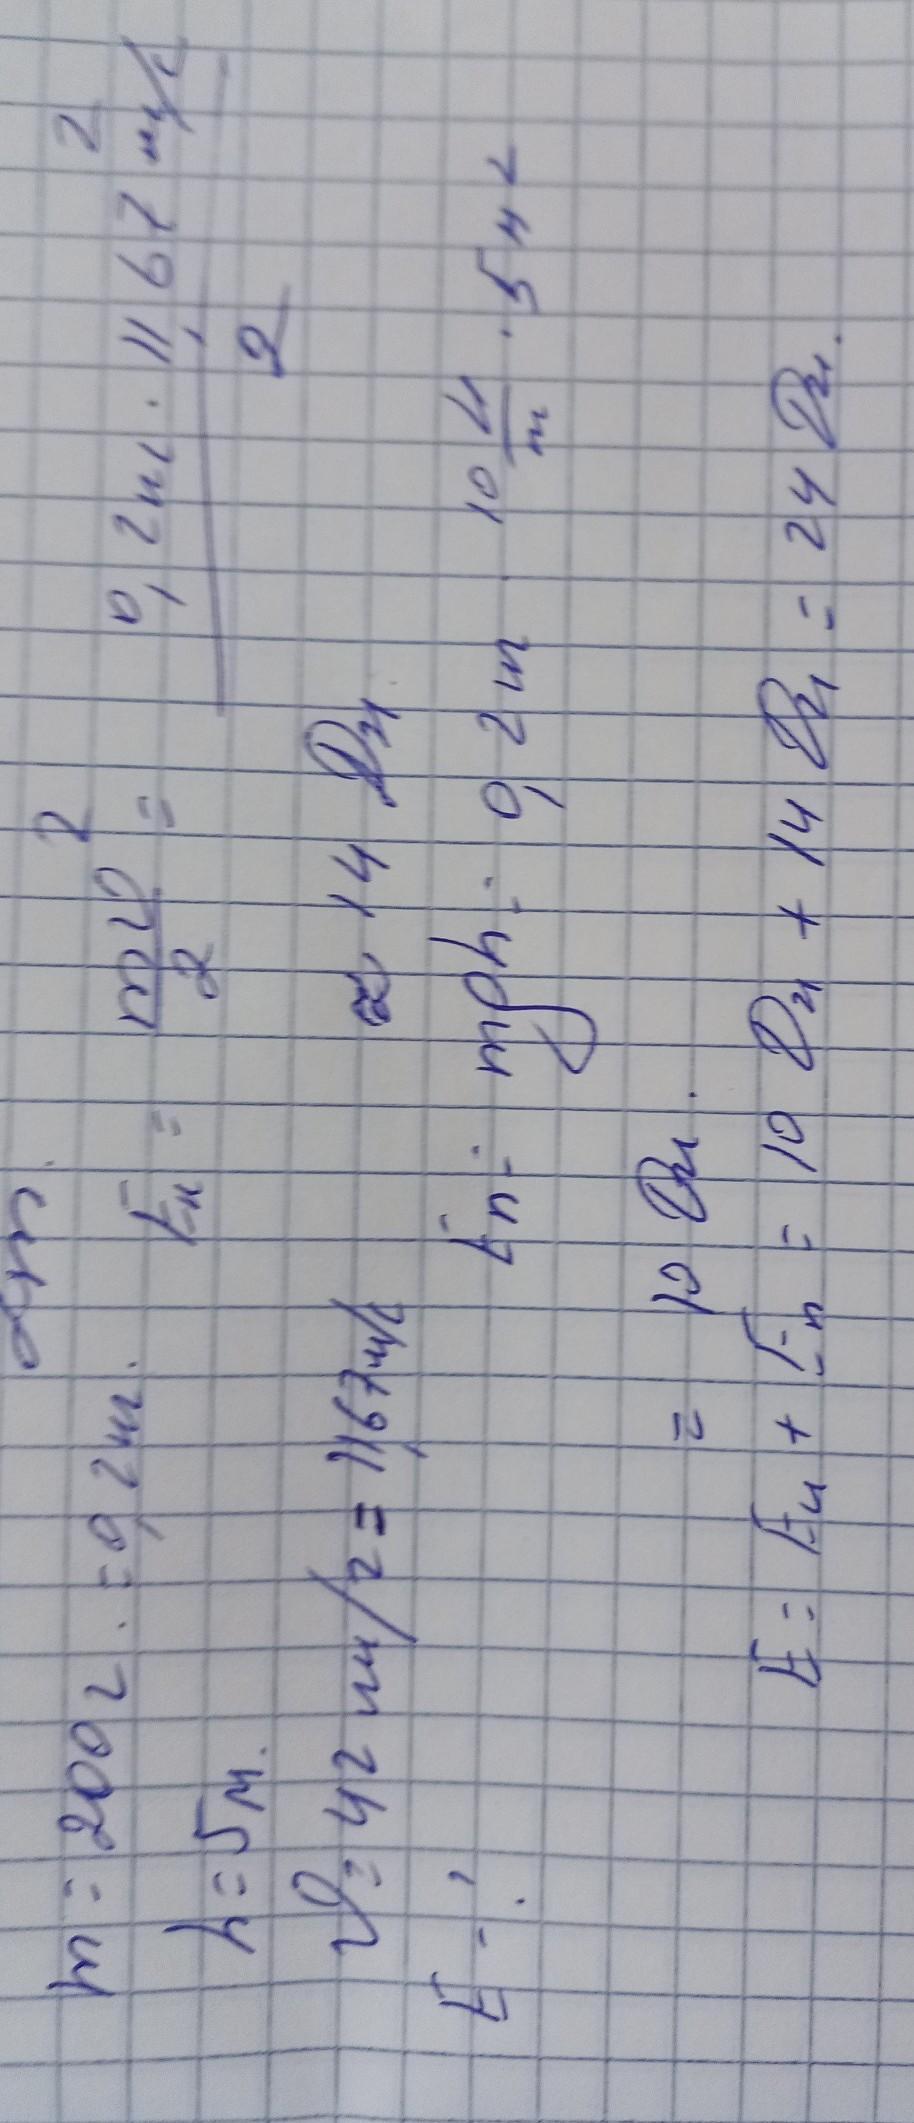 m = 200 г. = 0,2 кг.
h = 5 м.
V = 42 км/г = 11,67 м/с
E - ?
Eк = mV²/2 = 0,2 кг · 11,67² м/с / 2
≈ 14 Дж
Eп = mgh = 0,2 · 10 Н/ · 5 м =
= 10 Дж.
E = Eк + Eп = 10 Дж + 14 Дж = 24 Дж.